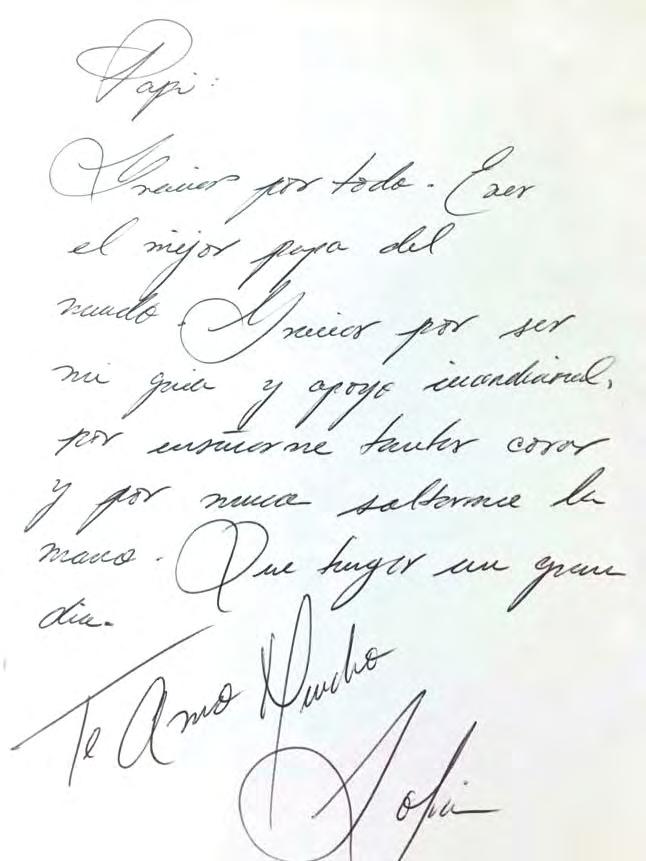 Papi:
Gracias por todo. Eres
el mejor papa del
mundo. Gracias por ser
mi guia y apoyo incondicional,
por enseñarme tantas cosas
y por nunca soltarme la
mano. Que tengas un gran
dia.
Te Amo Mucho
Sofia